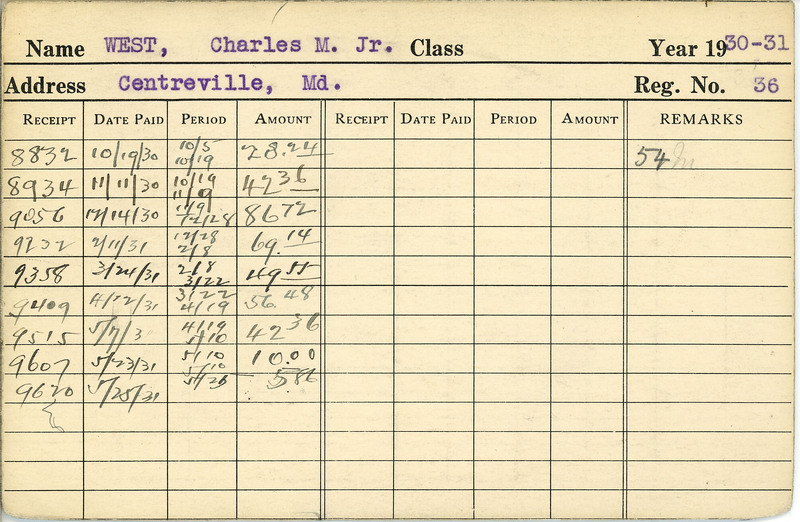 Name WEST, Charles M. Jr. Class Year 1930-31
Address Centreville, Md. Reg. No. 36
RECEIPT DATE PAID PERIOD AMOUNT RECEIPT DATE PAID PERIOD AMOUNT REMARKS
8832 10/19/30 10/5 10/19 28.24 54
8934 11/11/30 10/19 11/9 42 36
9056 12/14/30 11/9 12/28 86 72
9232 2/11/31 12/28 2/8 69.14
9358 3/24/31 2/8 3/22 49 55
9409 4/12/31 3/22 4/19 56.48
9515 5/7/3 4/19 5/10 42 36
9607 5/23/31 5/10 10.00
9620 5/25/31 5/10 5/25 5.86